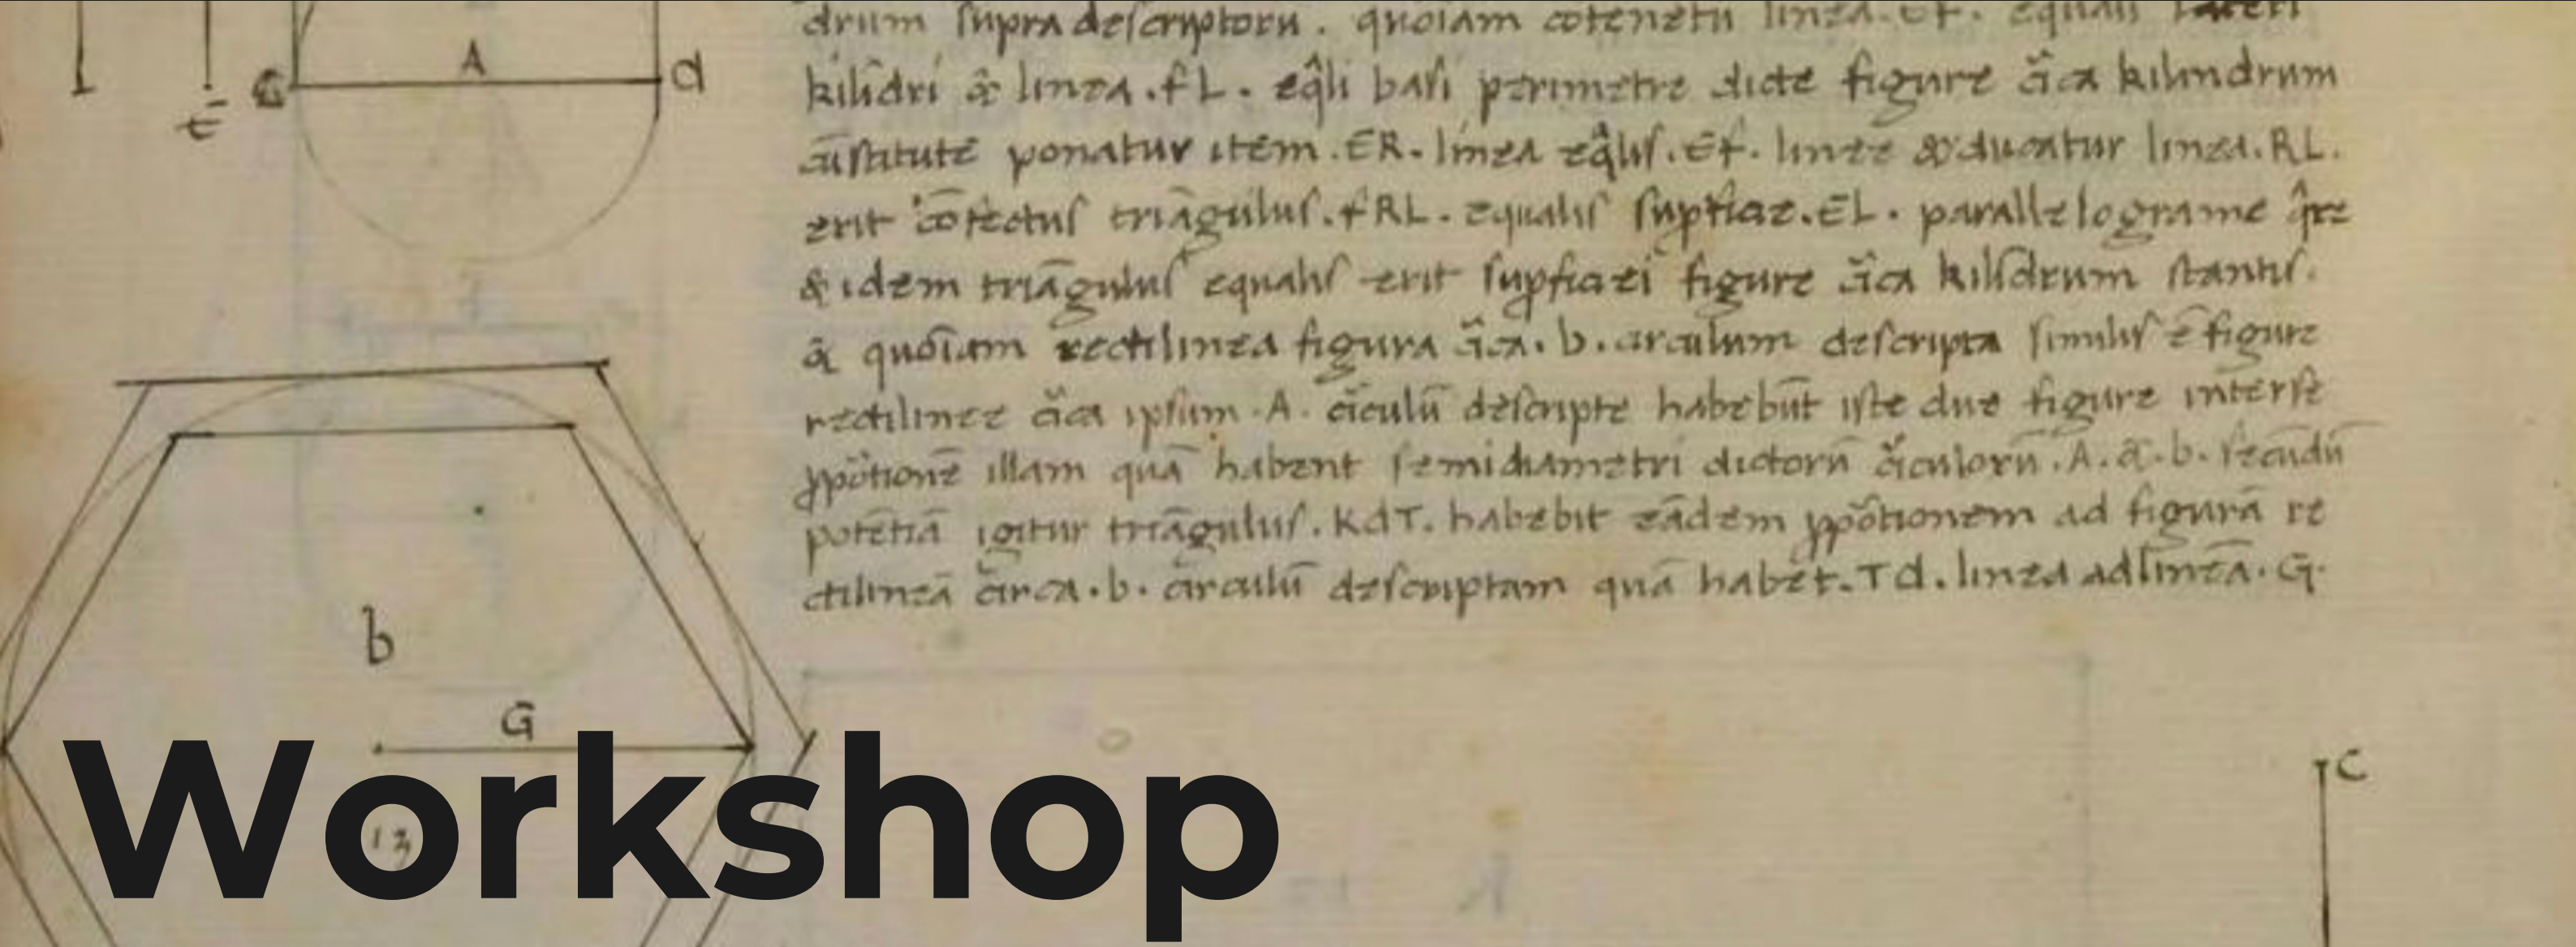 A
d
E
drum supra descriptorū. quoiam cōtenetu linea. Ef. equali lateri
kilīdri & linea. fL. eqͣli basi perimetre dicte figure cͥca kilindrum
cūstitute ponatur item. ER. linea eqͣlis. Ef. linee & ducatur linea. RL.
erit cōtectus triāgulus. fRL. equalis supficiæ. EL. parallelograme qͣre
& idem triāgulus equalis erit supficiei figure cͥca kilīdrum stantis.
& quoīam rectilinea figura cͥca. b. circulum descripta similis ē figure
rectilinee cͥca ipsum. A. cͥculū descripte habebūt iste due figure interse
ꝓpōtionē illam quā habent semidiametri dictorū cͥculorū. A. & b. secūdū
potētiā igitur triāgulus. KdT. habebit eādem ꝓpōtionem ad figurā re
ctilineā circa. b. circulū descriptam quā habet. Td. linea ad lineā. G.
b
G
C
13
Workshop